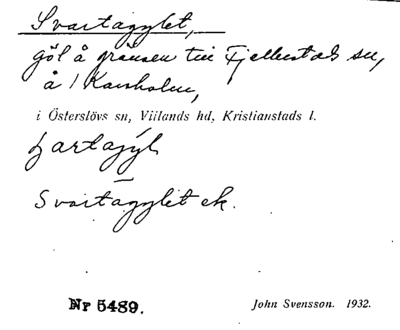 Svartagylet,
göl å gränsen till Fjelkestads sn,
å / Karsholm,
i Österslövs sn, Villands hd, Kristianstads l.
Svartagylet ek.
Nr 5489.
John Svensson. 1932.